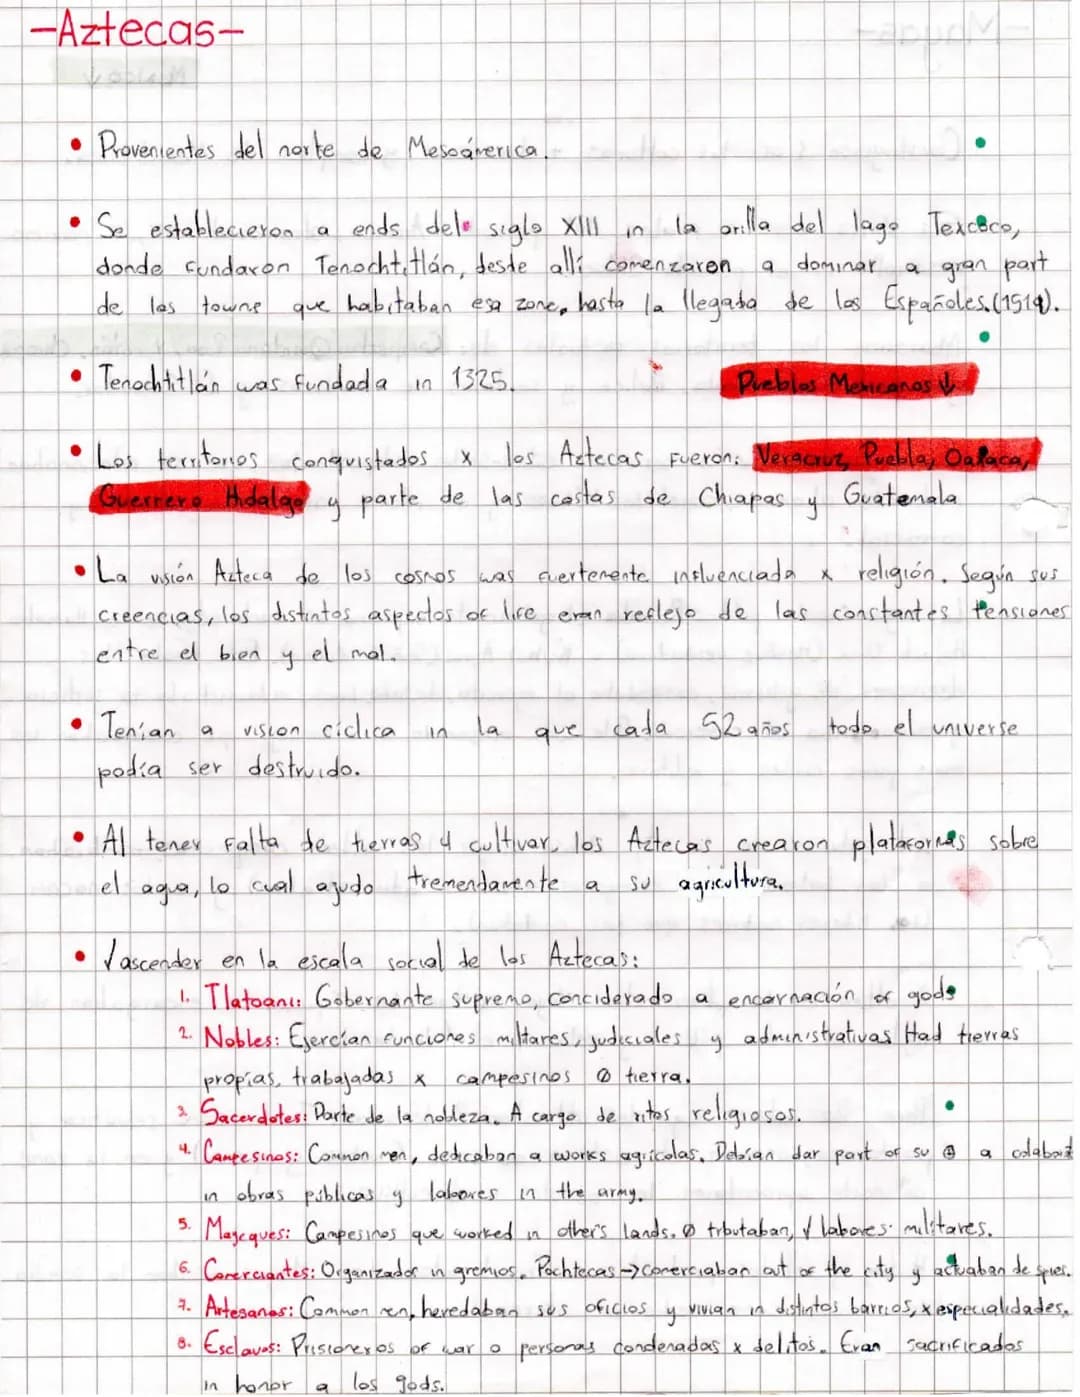 -Aztecas-
• Provenientes del norte de Mesoámerica.
• Se establecieron a ends del siglo XIII in la orilla del lago Texcoco,
donde fundaron Tenochtitlán, desde allí comenzaron a dominar a gran part
de los towns que habitaban esa zone, hasta la llegada de los Españoles. (1519).
• Tenochtitlán was fundada in 1325.
Pueblos Mexicanos ↓
• Los territorios conquistados x los Aztecas fueron: Veracruz, Puebla, Oaxaca,
Guerrero Hidalgo y parte de las costas de Chiapas y Guatemala
• La visión Azteca de los cosmos was fuertemente influenciada x religión. Según sus
creencias, los distintos aspectos of life eran reflejo de las constantes tensiones
entre el bien y el mal.
• Tenían a vision cíclica in la que cada 52 años todo el universe
podía ser destruido.
• Al tener falta de tierras 4 cultivar, los Aztecas crearon plataformas sobre
el agua, lo cual ayudo tremendamente a su agricultura.
• √ascender en la escala social de los Aztecas:
1. Tlatoani: Gobernante supremo, conciderado a encarnación of gods
2. Nobles: Ejercían funciones militares, judiciales y administrativas Had tierras
propias, trabajadas x campesinos Ø tierra.
3. Sacerdotes: Parte de la nobleza. A cargo de ritos religiosos.
4. Campesinos: Common men, dedicaban a works agrícolas. Debían dar part of su a colaborar
in obras públicas y labores in the army.
5. Mayeques: Campesinos que worked in other's lands. Ø trbutaban, √ labores militares.
6. Comerciantes: Organizados in gremios. Pochtecas → comerciaban out of the city y actuaban de spies.
7. Artesanos: Common men, heredaban sus oficios y vivian in distintos barrios, x especialidades.
8. Esclavos: Prisioneros of war o personas condenadas x delitos. Eran sacrificados
in honor a los gods.